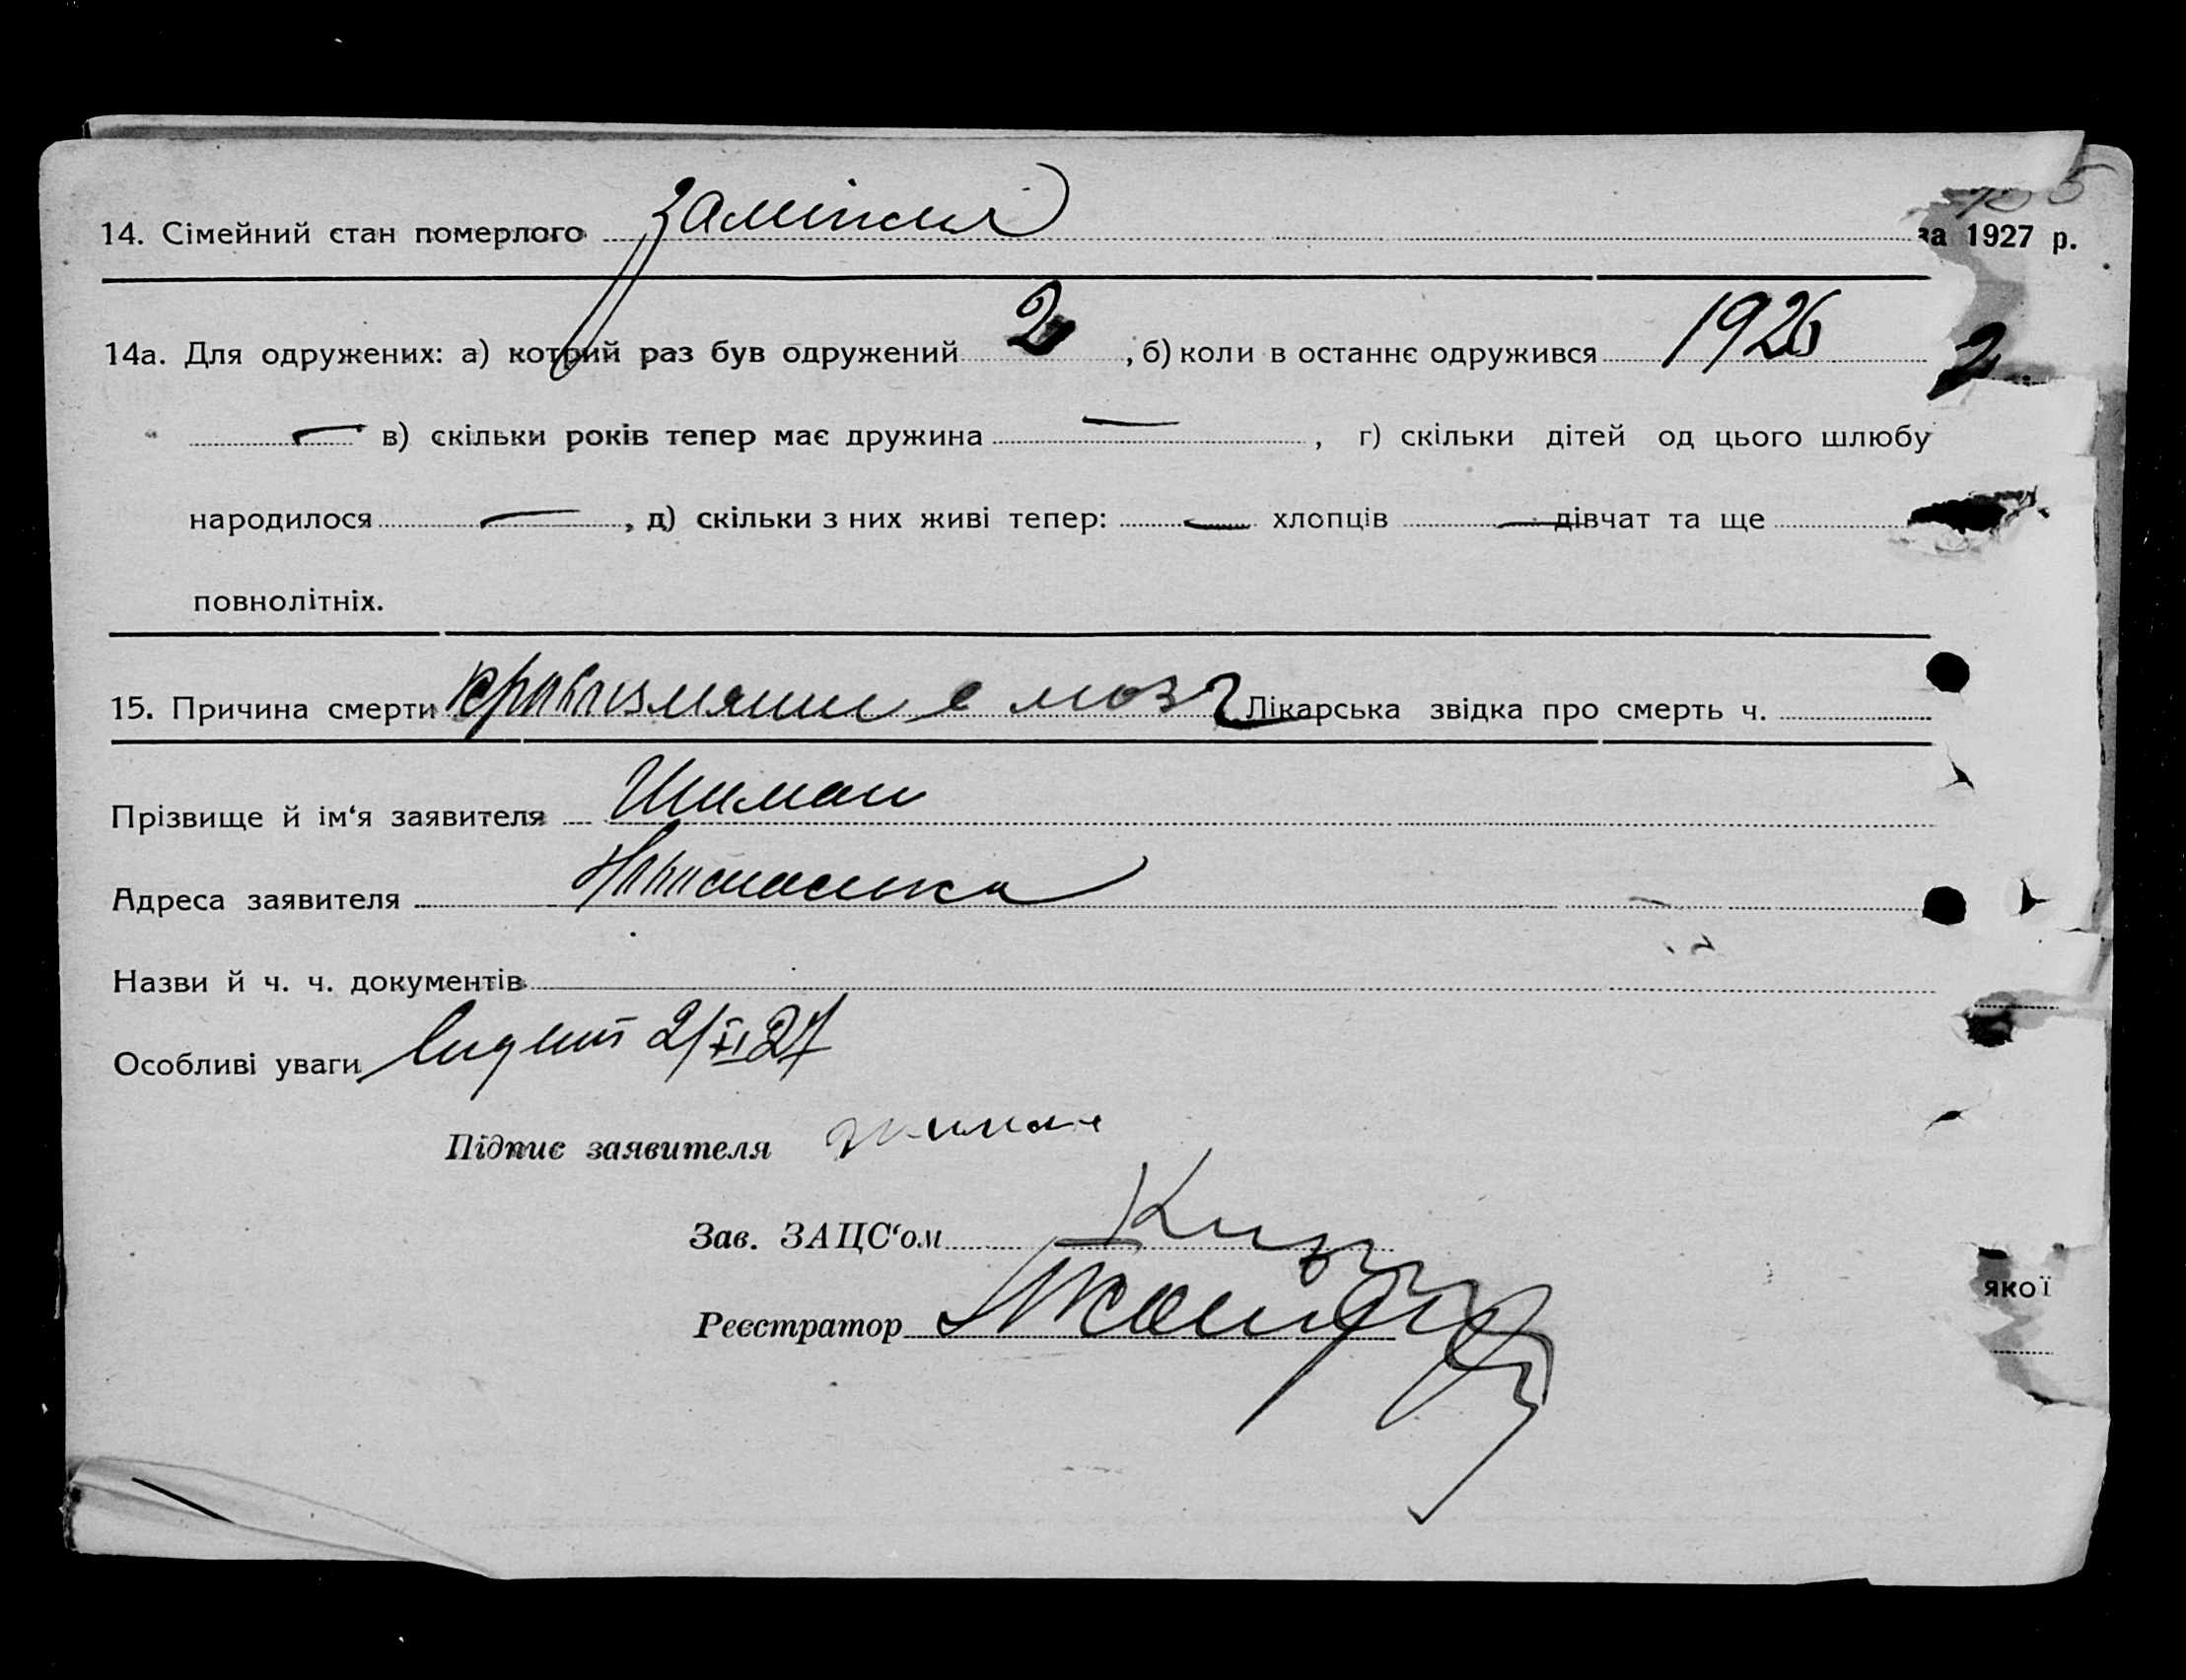 14. Сімейний стан померлого заміжня
за 1927 р.
14а. Для одружених: а) котрий раз був одружений 2, б) коли в останнє одружився 1926
2
— в) скільки років тепер має дружина —, г) скільки дітей од цього шлюбу
народилося —, д) скільки з них живі тепер: — хлопців — дівчат та ще
повнолітніх.
15. Причина смерти в мозг Лікарська звідка про смерть ч.
Прізвище й ім‘я заявителя Шиман
Адреса заявителя
Назви й ч. ч. документів
Особливі уваги 2/XI 27
Підпис заявителя Шиман
Зав. ЗАЦС‘ом
Реєстратор
якої